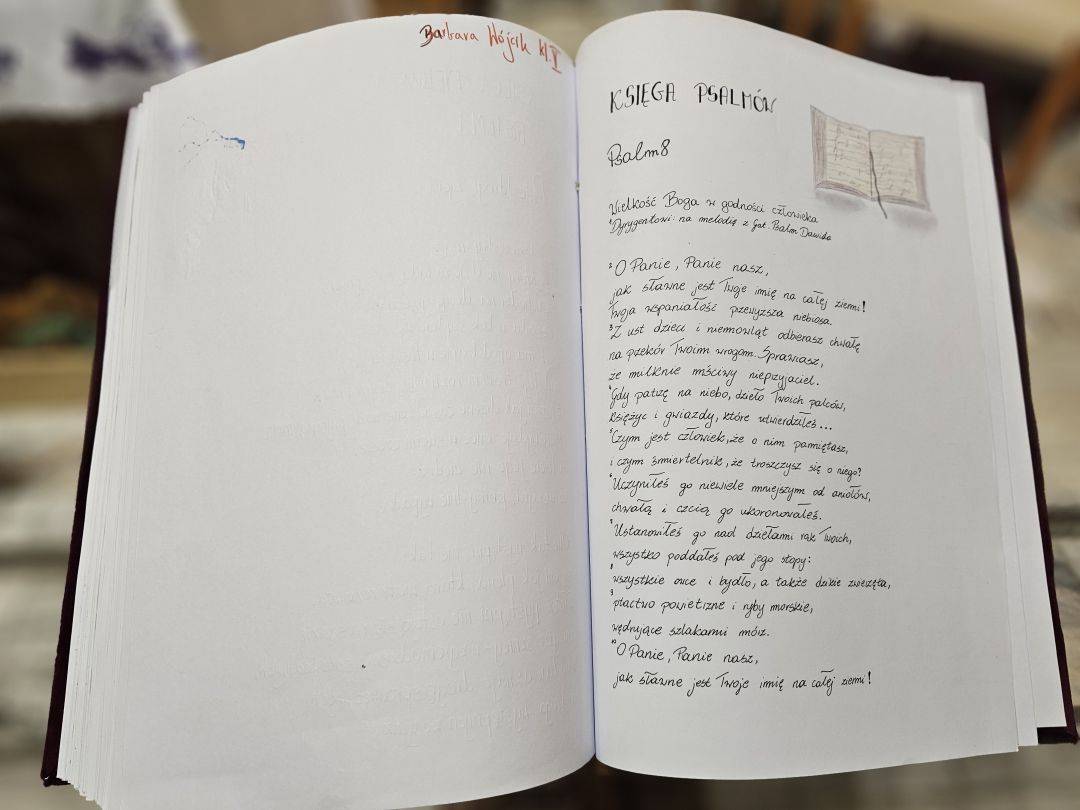 Barbara Wójcik kl. V
KSIĘGA PSALMÓW
Psalm 8
Wielkość Boga w godności człowieka
¹ Dyrygentowi: na melodię z Gat. Psalm Dawida
² O Panie, Panie nasz,
jak sławne jest Twoje imię na całej ziemi!
Twoja wspaniałość przewyższa niebiosa.
³ Z ust dzieci i niemowląt odbierasz chwałę
na przekór Twoim wrogom. Sprawiasz,
że milknie mściwy nieprzyjaciel.
⁴ Gdy patrzę na niebo, dzieło Twoich palców,
księżyc i gwiazdy, które utwierdziłeś...
⁵ Czym jest człowiek, że o nim pamiętasz,
i czym śmiertelnik, że troszczysz się o niego?
⁶ Uczyniłeś go niewiele mniejszym od aniołów,
chwałą i czcią go ukoronowałeś.
⁷ Ustanowiłeś go nad dziełami rąk Twoich,
wszystko poddałeś pod jego stopy:
⁸ wszystkie owce i bydło, a także dzikie zwierzęta,
⁹ ptactwo powietrzne i ryby morskie,
wędrujące szlakami mórz.
¹⁰ O Panie, Panie nasz,
jak sławne jest Twoje imię na całej ziemi!